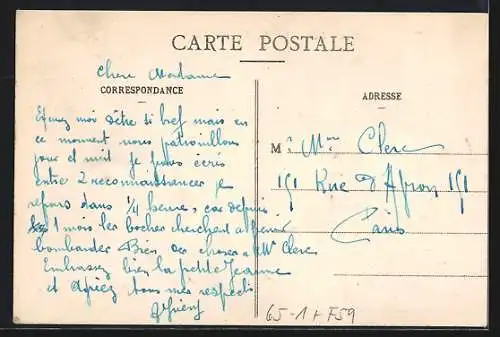 CARTE POSTALE
Chere Madame
CORRESPONDANCE
ADRESSE
Excusez moi d'être si bref mais en
ce moment nous patrouillons
jour et nuit je vous écris
entre 2 reconnaissances je
repars dans 1/4 heure, car depuis
1 mois les boches cherchent a
bombarder Bien des choses a Mr Clerc
Embrassez bien la petite Jeanne
et Agréez tous mes respects
M. Mme Clerc
151 Rue d' 151
Paris
65-1+F59